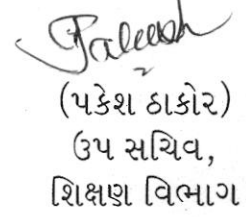 (પકેશ ઠાકોર)
ઉપ સચિવ,
શિક્ષણ વિભાગ